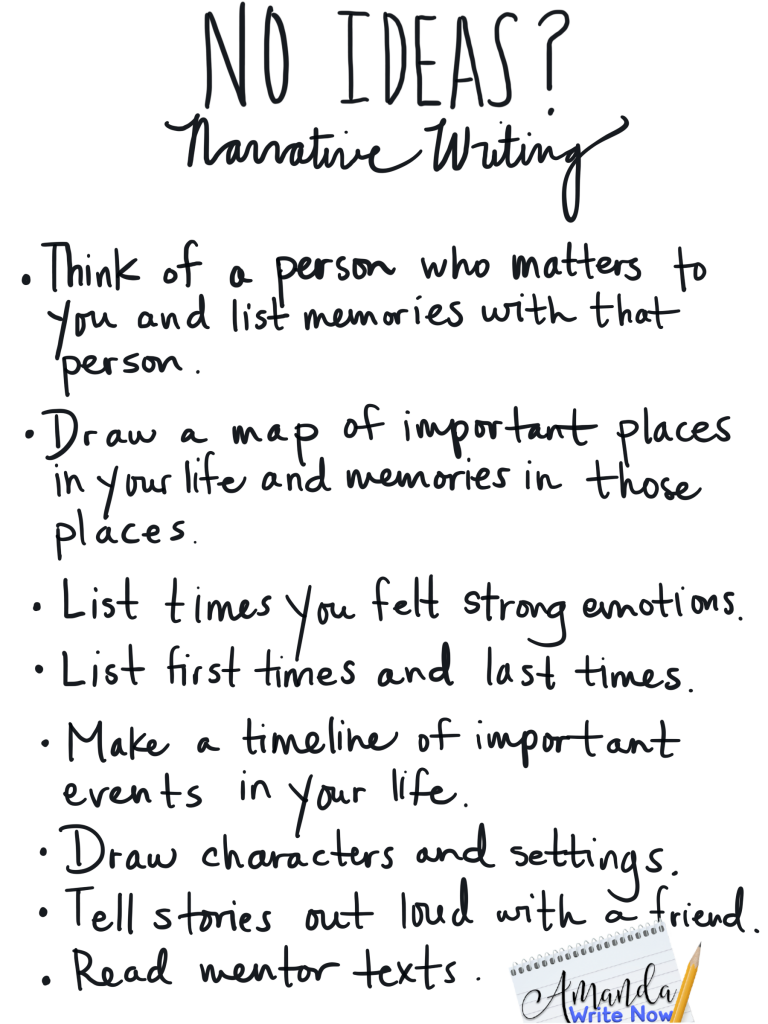 NO IDEAS?
Narrative Writing
• Think of a person who matters to
you and list memories with that
person.
• Draw a map of important places
in your life and memories in those
places.
• List times you felt strong emotions.
• List first times and last times.
• Make a timeline of important
events in your life.
• Draw characters and settings.
• Tell stories out loud with a friend.
• Read mentor texts.
Amanda
Write Now